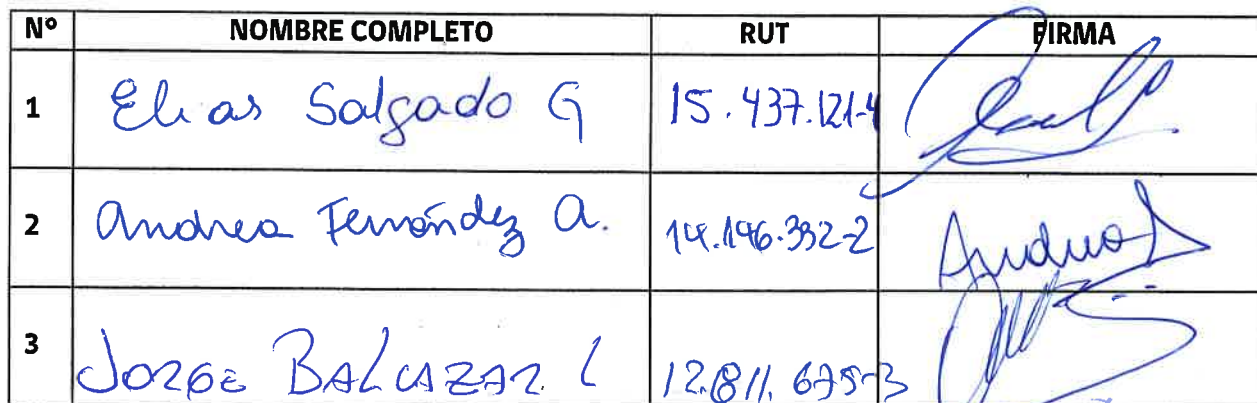 Nº NOMBRE COMPLETO RUT FIRMA
1 Elias Salgado G 15.437.121-4
2 Andrea Fernández A. 14.146.392-2
3 JORGE BALCAZAR L 12.811.675-3